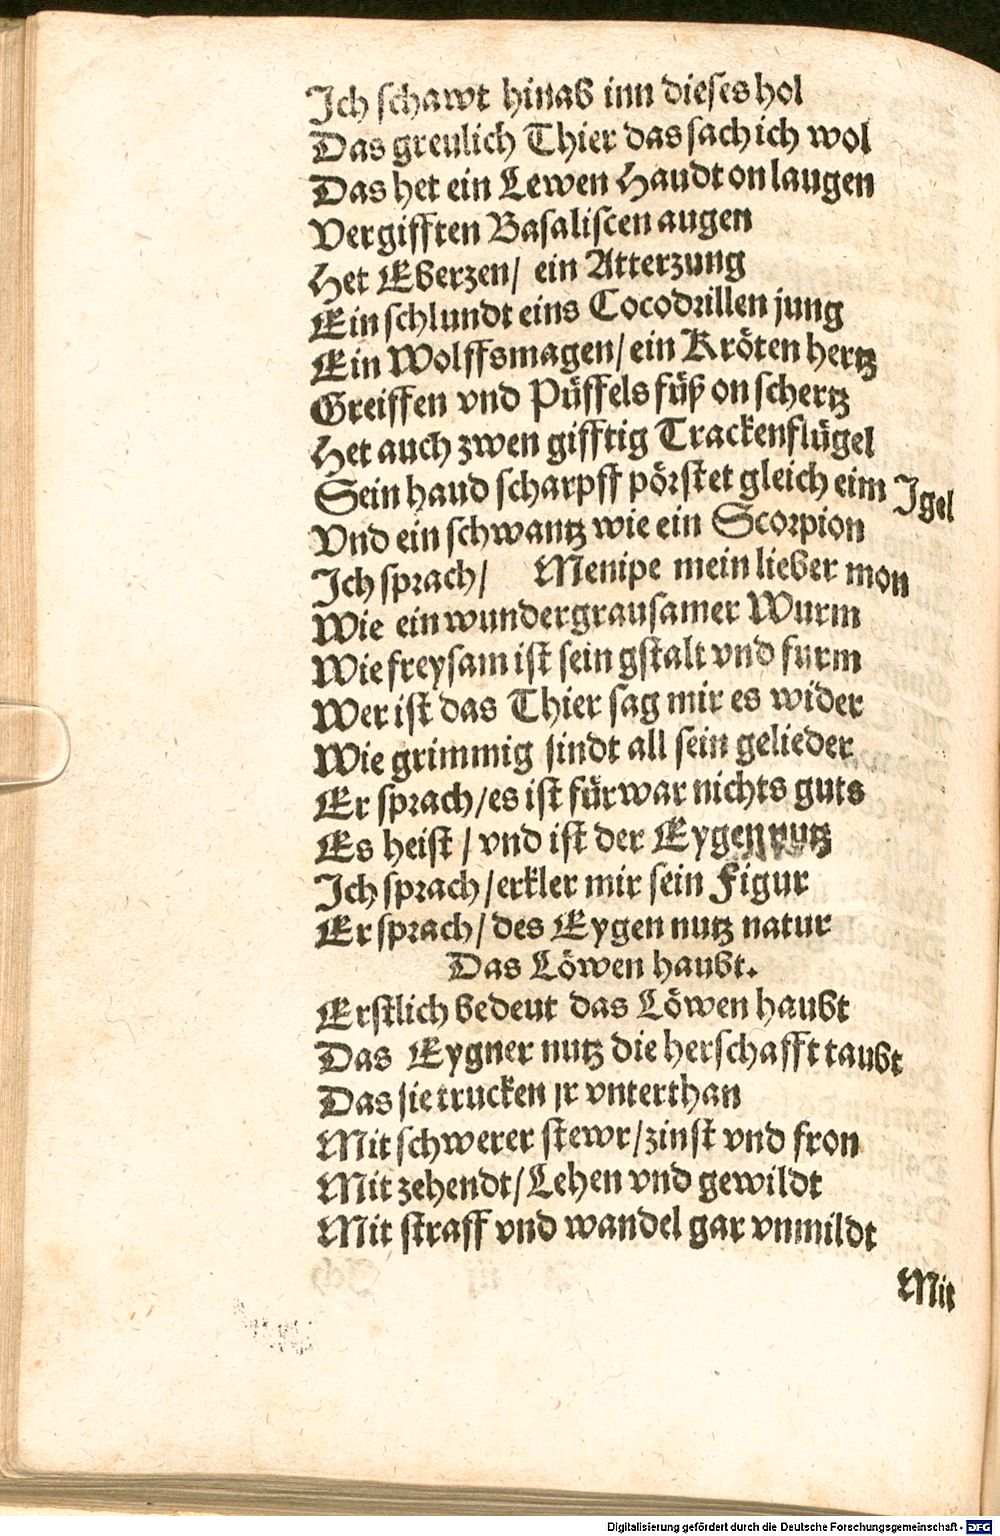 Ich schawt hinab inn dieses hol
Das greulich Thier das sach ich wol
Das het ein Lewen Haudt on laugen
Vergifften Basaliscen augen
Het Eberzen/ ein Atterzung
Ein schlundt eins Cocodrillen jung
Ein Wolffsmagen/ ein Kröten hertz
Greiffen vnd Püffels füß on schertz
Het auch zwen gifftig Trackenflügel
Sein haud scharpff pörstet gleich eim Igel
Vnd ein schwantz wie ein Scorpion
Ich sprach/ Menipe mein lieber mon
Wie ein wundergrausamer Wurm
Wie freysam ist sein gstalt vnd furm
Wer ist das Thier sag mir es wider
Wie grimmig sindt all sein gelieder
Er sprach/ es ist fürwar nichts guts
Es heist/ vnd ist der Eygen nutz
Ich sprach/ erkler mir sein Figur
Er sprach/ des Eygen nutz natur
Das Löwen haubt.
Erstlich bedeut das Löwen haubt
Das Eygner nutz die herschafft taubt
Das sie trucken jr vnterthan
Mit schwerer stewr/ zinst vnd fron
Mit zehendt/ Lehen vnd gewildt
Mit straff vnd wandel gar vnmildt
Mit
Digitalisierung gefördert durch die Deutsche Forschungsgemeinschaft - DFG